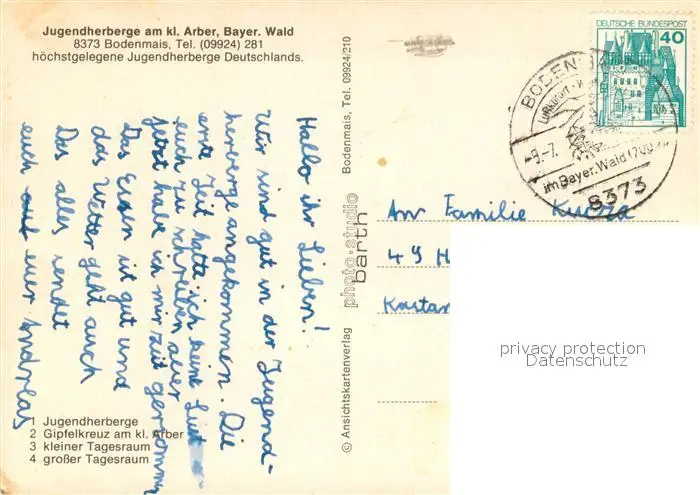 Jugendherberge am kl. Arber, Bayer. Wald
8373 Bodenmais, Tel. (09924) 281
höchstgelegene Jugendherberge Deutschlands.
Hallo ihr Lieben!
Wir sind gut in der Jugend-
herberge angekommen. Die
erste Zeit hatte ich keine Lust
euch zu schreiben aber
jetzt habe ich mir zeit genommen
Das Essen ist gut und
das Wetter geht auch
Das alles sendet
euch auf euer Andreas
1 Jugendherberge
2 Gipfelkreuz am kl. Arber
3 kleiner Tagesraum
4 großer Tagesraum
© Ansichtskartenverlag
photo-studio
barth
Bodenmais, Tel. 09924/210
DEUTSCHE BUNDESPOST
40
BODENMAIS
Luftkurort
-9.-7.
im Bayer. Wald (700
8373
An Familie
49 H
Kastan
privacy protection
Datenschutz